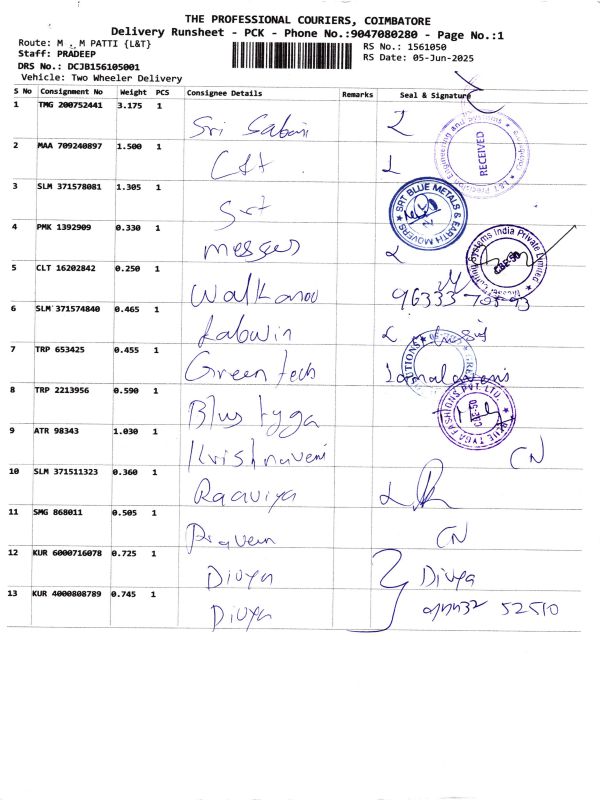 THE PROFESSIONAL COURIERS, COIMBATORE
Delivery Runsheet - PCK - Phone No.:9047080280 - Page No.:1
Route: M . M PATTI {L&T}
RS No.: 1561050
Staff: PRADEEP
RS Date: 05-Jun-2025
DRS No.: DCJB156105001
Vehicle: Two Wheeler Delivery
S No Consignment No Weight PCS Consignee Details Remarks Seal & Signature
1 TMG 200752441 3.175 1
Sri Sabari
RECEIVED
2 MAA 709240897 1.500 1
L&t
3 SLM 371578081 1.305 1
Srt
SRT BLUE METALS & EARTH MOVERS
4 PMK 1392909 0.330 1
messes
Cutting Systems India Private Limited
5 CLT 16202842 0.250 1
Walkaroo
96333
6 SLM 371574840 0.465 1
Labwin
7 TRP 653425 0.455 1
Green tech
8 TRP 2213956 0.590 1
Blue tyga
BLUE TYGA FASHIONS PVT. LTD.
9 ATR 98343 1.030 1
Krishnaveni
CN
10 SLM 371511323 0.360 1
Raaviya
11 SMG 868011 0.505 1
Praveen
CN
12 KUR 6000716078 0.725 1
Divya
Divya
13 KUR 4000808789 0.745 1
Divya
52510